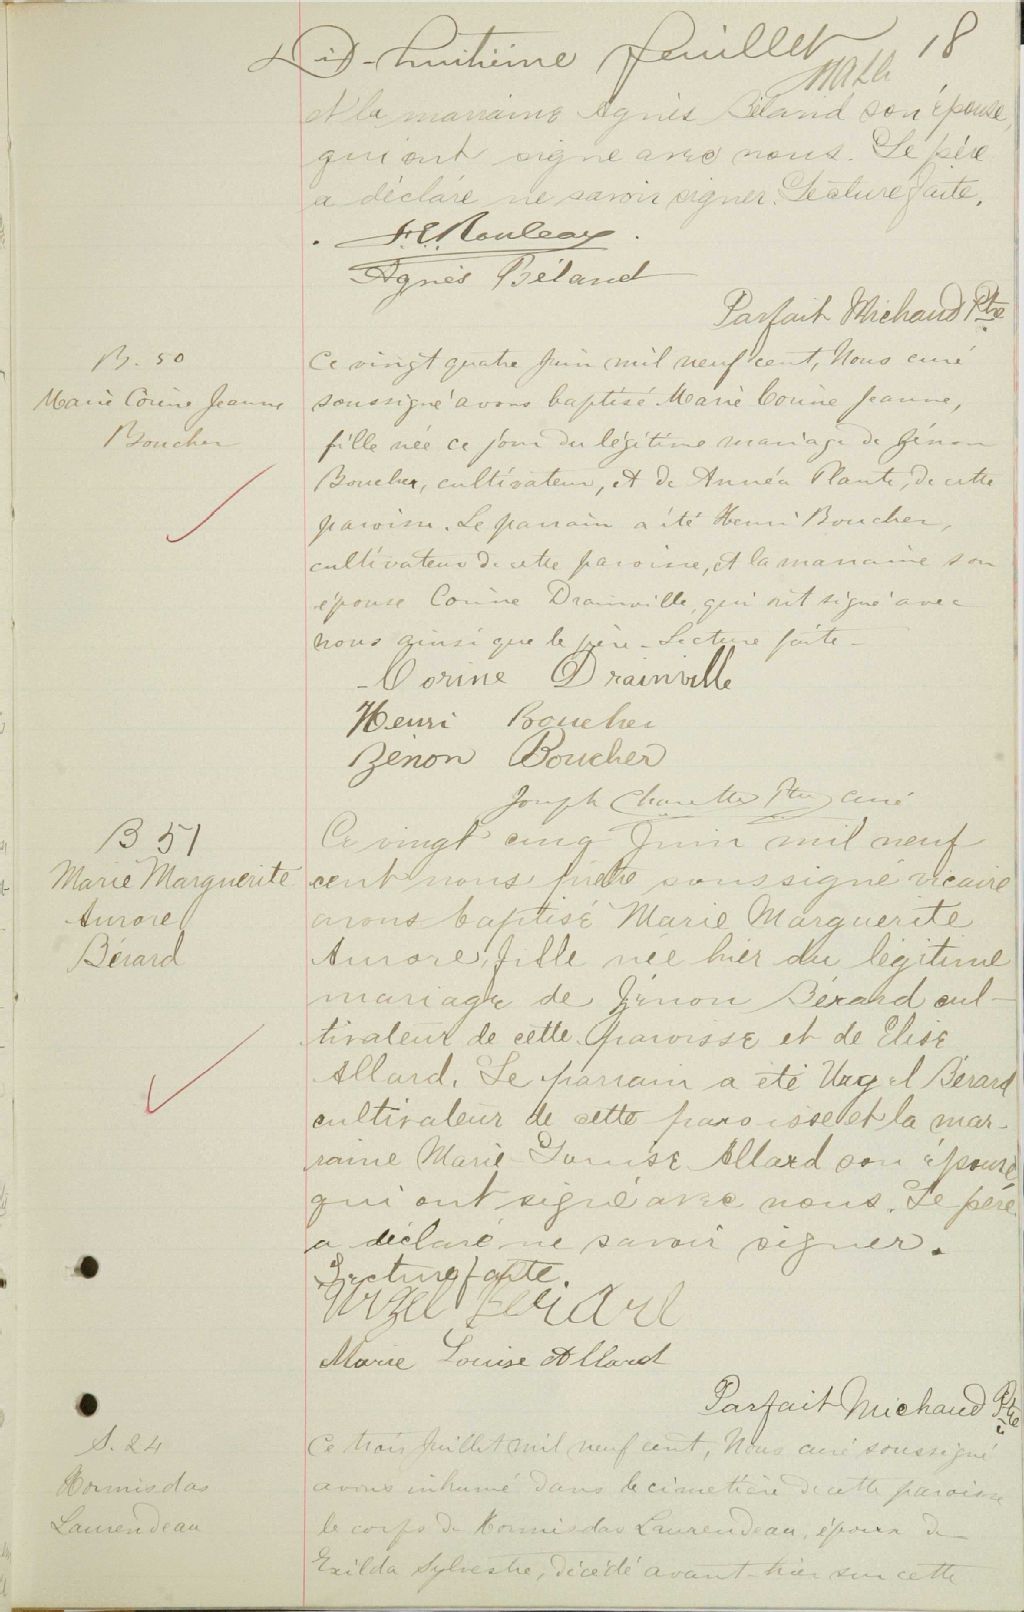 Dix-huitième feuillet 18
et la marraine Agnès Béland son épouse,
qui ont signé avec nous. Le père
a déclaré ne savoir signer. Lecture faite.
Rouleau
Agnès Béland
Parfait Michaud Ptre
B. 50
Marie Corine Jeanne
Boucher
Ce vingt quatre Juin mil neuf cent, Nous curé
soussigné avons baptisé Marie Corine Jeanne,
fille née ce jour du légitime mariage de Zénon
Boucher, cultivateur, et de Annéa Plante, de cette
paroisse. Le parrain a été Henri Boucher,
cultivateur de cette paroisse, et la marraine son
épouse Corine Drainville, qui ont signé avec
nous ainsi que le père - Lecture faite -
Corine Drainville
Henri Boucher
Zénon Boucher
Joseph Ptre curé
B 51
Marie Marguerite
Aurore
Bérard
Ce vingt cinq Juin mil neuf
cent nous prêtre soussigné vicaire
avons baptisé Marie Marguerite
Aurore, fille née hier du légitime
mariage de Zénon Bérard cul-
tivateur de cette paroisse et de Elise
Allard. Le parrain a été Urgel Bérard
cultivateur de cette paroisse et la mar-
raine Marie-Louise Allard son épouse
qui ont signé avec nous. Le père
a déclaré ne savoir signer.
Lecture faite.
Urzel Berard
Marie Louise Allard
Parfait Michaud Ptre
S. 24
Hormisdas
Laurendeau
Ce trois Juillet mil neuf cent, Nous curé soussigné
avons inhumé dans le cimetière de cette paroisse
le corps de Hormisdas Laurendeau, époux de
Exilda Sylvestre, décédé avant-hier sur cette